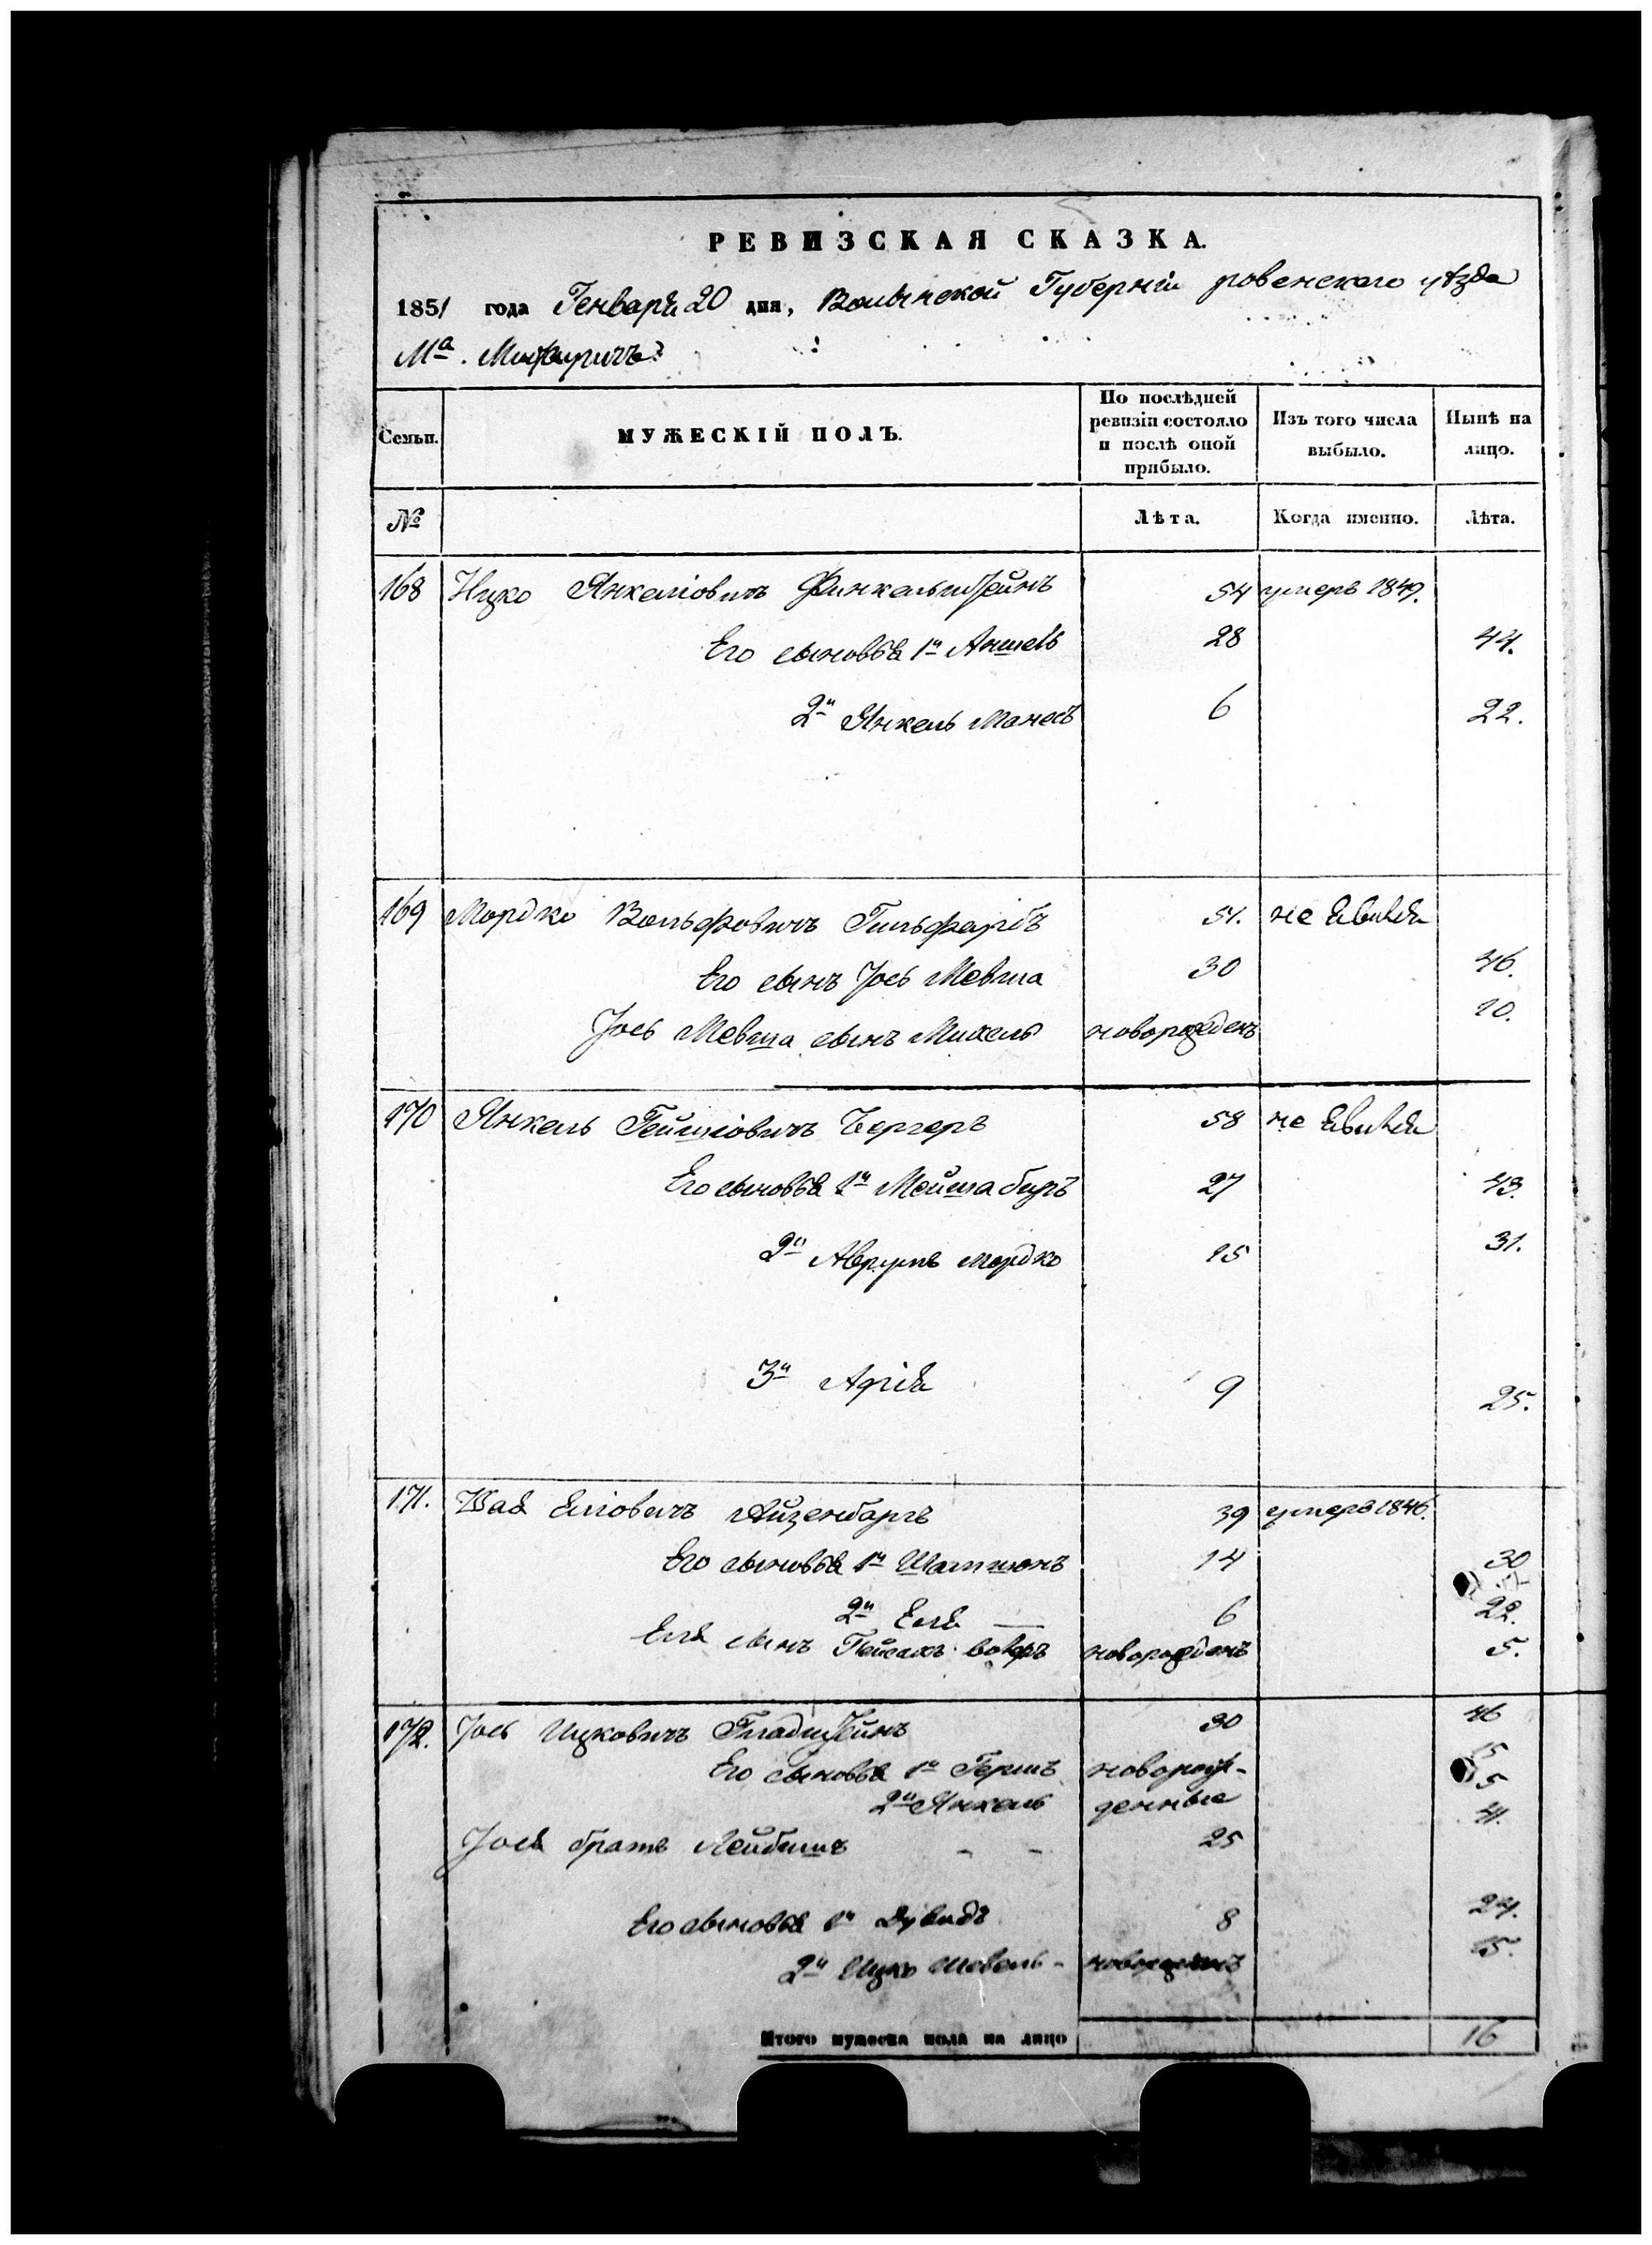 РЕВИЗСКАЯ СКАЗКА.
1851 года Генваря 20 дня, Волынской Губерніи ровенскаго уѣзда
Ма.
Семьи. МУЖЕСКІЙ ПОЛЪ. По послѣдней ревизіи состояло и послѣ оной прибыло. Изъ того числа выбыло. Нынѣ на лицо.
№ Лѣта. Когда именно. Лѣта.
168 Ицко Янкеліовичъ Финкельштейнъ 54 умеръ 1849.
Его сыновья 1й Аншель 28 44.
2й Янкель Манесъ 6 22.
169 Мордко Вольфовичъ Гильфарбъ 51. не явился
Его сынъ Іось Мевша 30 46.
Іось Мевша сынъ Михель новорожденъ 10.
170 Янкель Геймовичъ Бергеръ 58 не явился
Его сыновья 1й Мойша беръ 27 43.
2й Аврумъ Мордко 15 31.
3й Арія 9 25.
171. Шая Еліовичъ Айзенбаргъ 39 умеръ 1846.
Его сыновья 1й 14 30
2й Еля — 6 22.
Еля сынъ Пейсахъ новорожденъ 5.
172. Іось Ицковичъ Гладштейнъ 30 46
Его сыновья 1й Гершъ новорож- 15
2й Янкель денные 5
Іося братъ Лейбишъ - - 25 41.
Его сыновья 1й Дувидъ 8 24.
2й Ицко Шевель - новорожденъ 15.
Итого мужеска пола на лицо 16